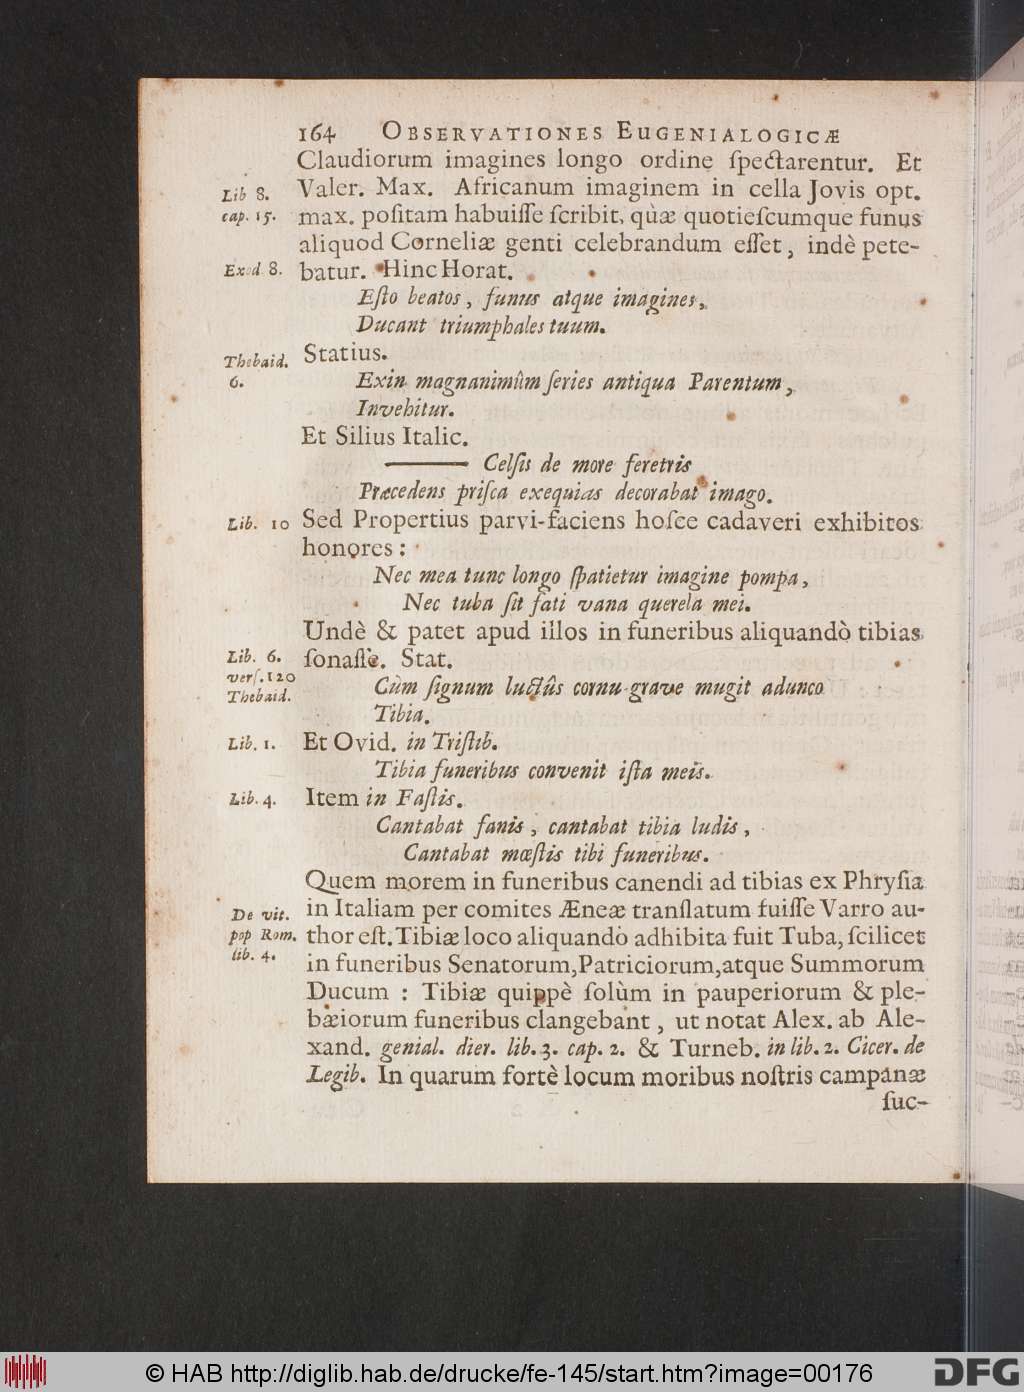 164 OBSERVATIONES EUGENIALOGICÆ
Claudiorum imagines longo ordine ſpectarentur. Et
Lib 8. Valer. Max. Africanum imaginem in cella Jovis opt.
cap. 15. max. poſitam habuiſſe ſcribit, qùæ quotieſcumque funus
aliquod Corneliæ genti celebrandum eſſet, indè pete-
Exod 8. batur. Hinc Horat.
Eſto beatos, funus atque imagines,
Ducant triumphales tuum.
Thebaid. Statius.
6. Exin magnanimûm ſeries antiqua Parentum,
Invehitur.
Et Silius Italic.
——— Celſis de more feretris
Præcedens priſca exequias decorabat imago.
Lib. 10 Sed Propertius parvi-faciens hoſce cadaveri exhibitos
honores:
Nec mea tunc longo ſpatietur imagine pompa,
Nec tuba ſit fati vana querela mei.
Undè & patet apud illos in funeribus aliquandò tibias
Lib. 6. ſonaſſe. Stat.
verſ. 120
Thebaid. Cùm ſignum luctûs cornu grave mugit adunco
Tibia.
Lib. 1. Et Ovid. in Triſtib.
Tibia funeribus convenit iſta meis.
Lib. 4. Item in Faſtis.
Cantabat fanis, cantabat tibia ludis,
Cantabat mœſtis tibi funeribus.
Quem morem in funeribus canendi ad tibias ex Phryſia
De vit. in Italiam per comites Æneæ tranſlatum fuiſſe Varro au-
pop Rom. thor eſt. Tibiæ loco aliquandò adhibita fuit Tuba, ſcilicet
lib. 4. in funeribus Senatorum, Patriciorum, atque Summorum
Ducum : Tibiæ quippè ſolùm in pauperiorum & ple-
bæiorum funeribus clangebant, ut notat Alex. ab Ale-
xand. genial. dier. lib. 3. cap. 2. & Turneb. in lib. 2. Cicer. de
Legib. In quarum fortè locum moribus noſtris campanæ
ſuc-
© HAB http://diglib.hab.de/drucke/fe-145/start.htm?image=00176
DFG